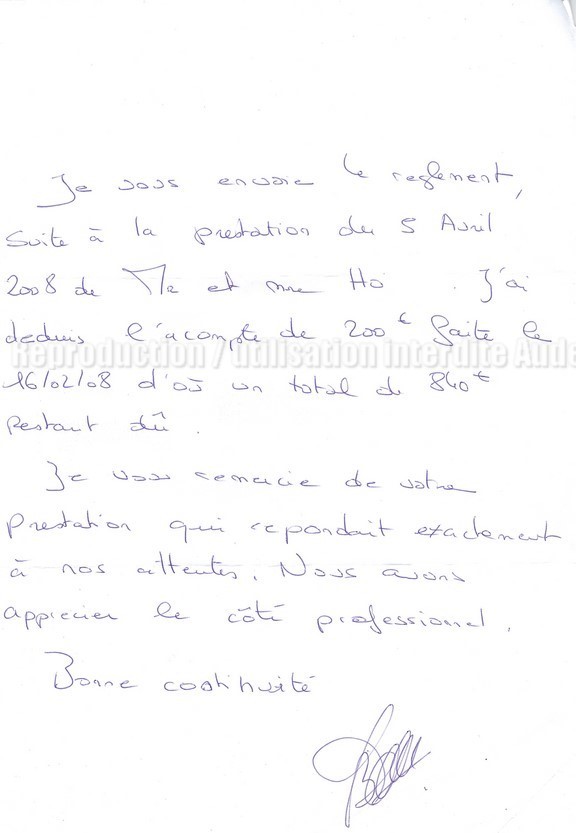 Je vous envoie le reglement,
suite à la prestation du 5 Avril
2008 de Mr et mme Ho . J'ai
deduis l'acompte de 200€ faite le
Reproduction / Utilisation Interdite Aude
16/02/08 d'où un total de 840€
restant dû.
Je vous remercie de votre
prestation qui repondait exactement
à nos attentes. Nous avons
apprecier le côté professionnel.
Bonne continuité